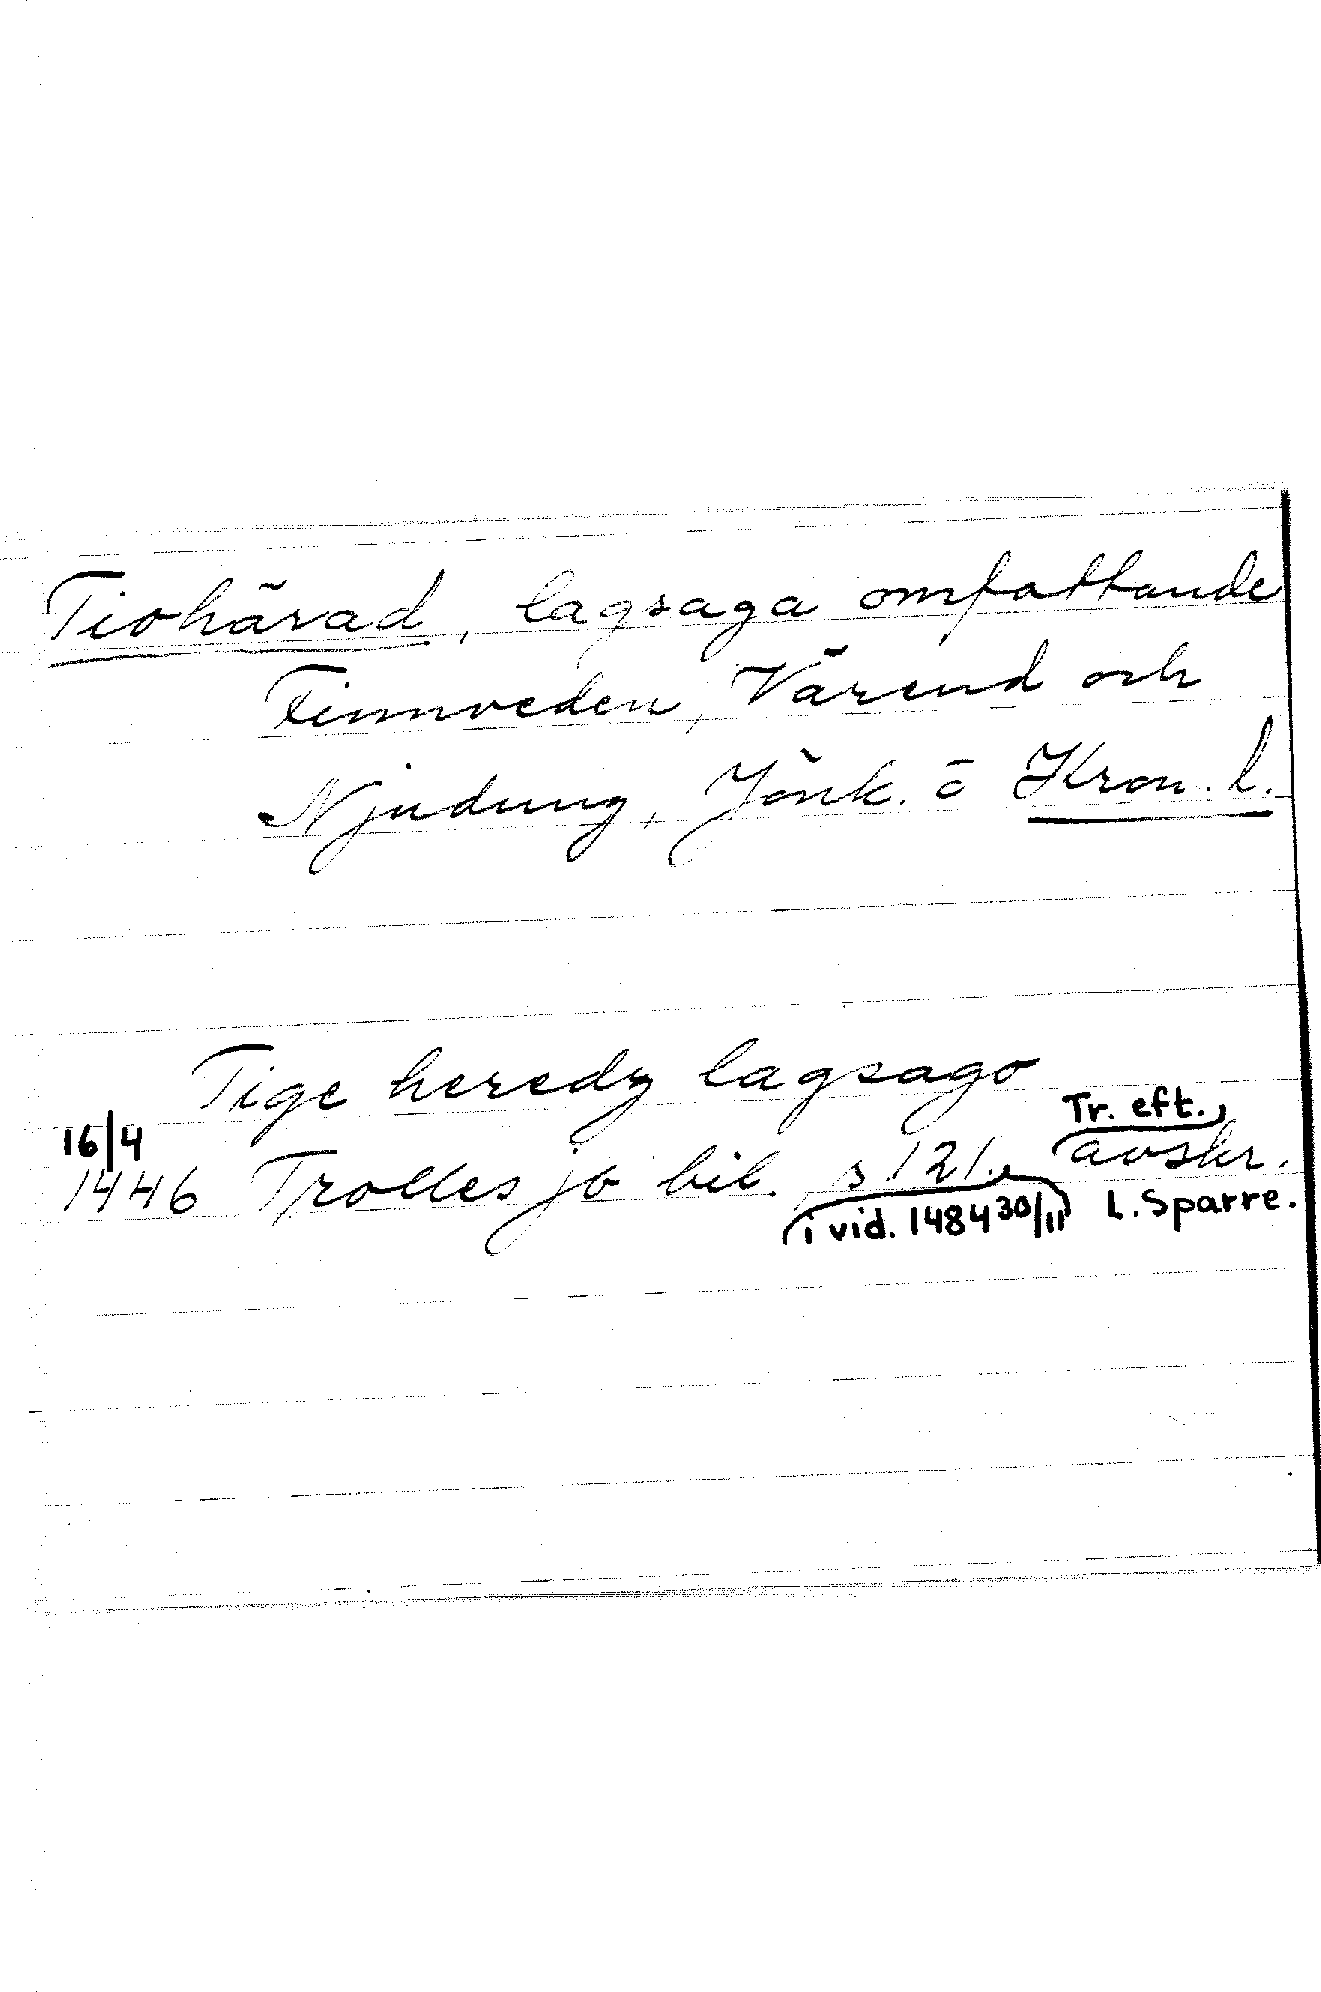 Tiohärad, lagsaga omfattande
Finnveden, Värend och
Njudung, Jönk. o Kron. l.
Tige heredz lagsago
16/4
1446 Trolles jb bil. s 121. Tr. eft. avskr.
i vid. 1484 30/11 L. Sparre.